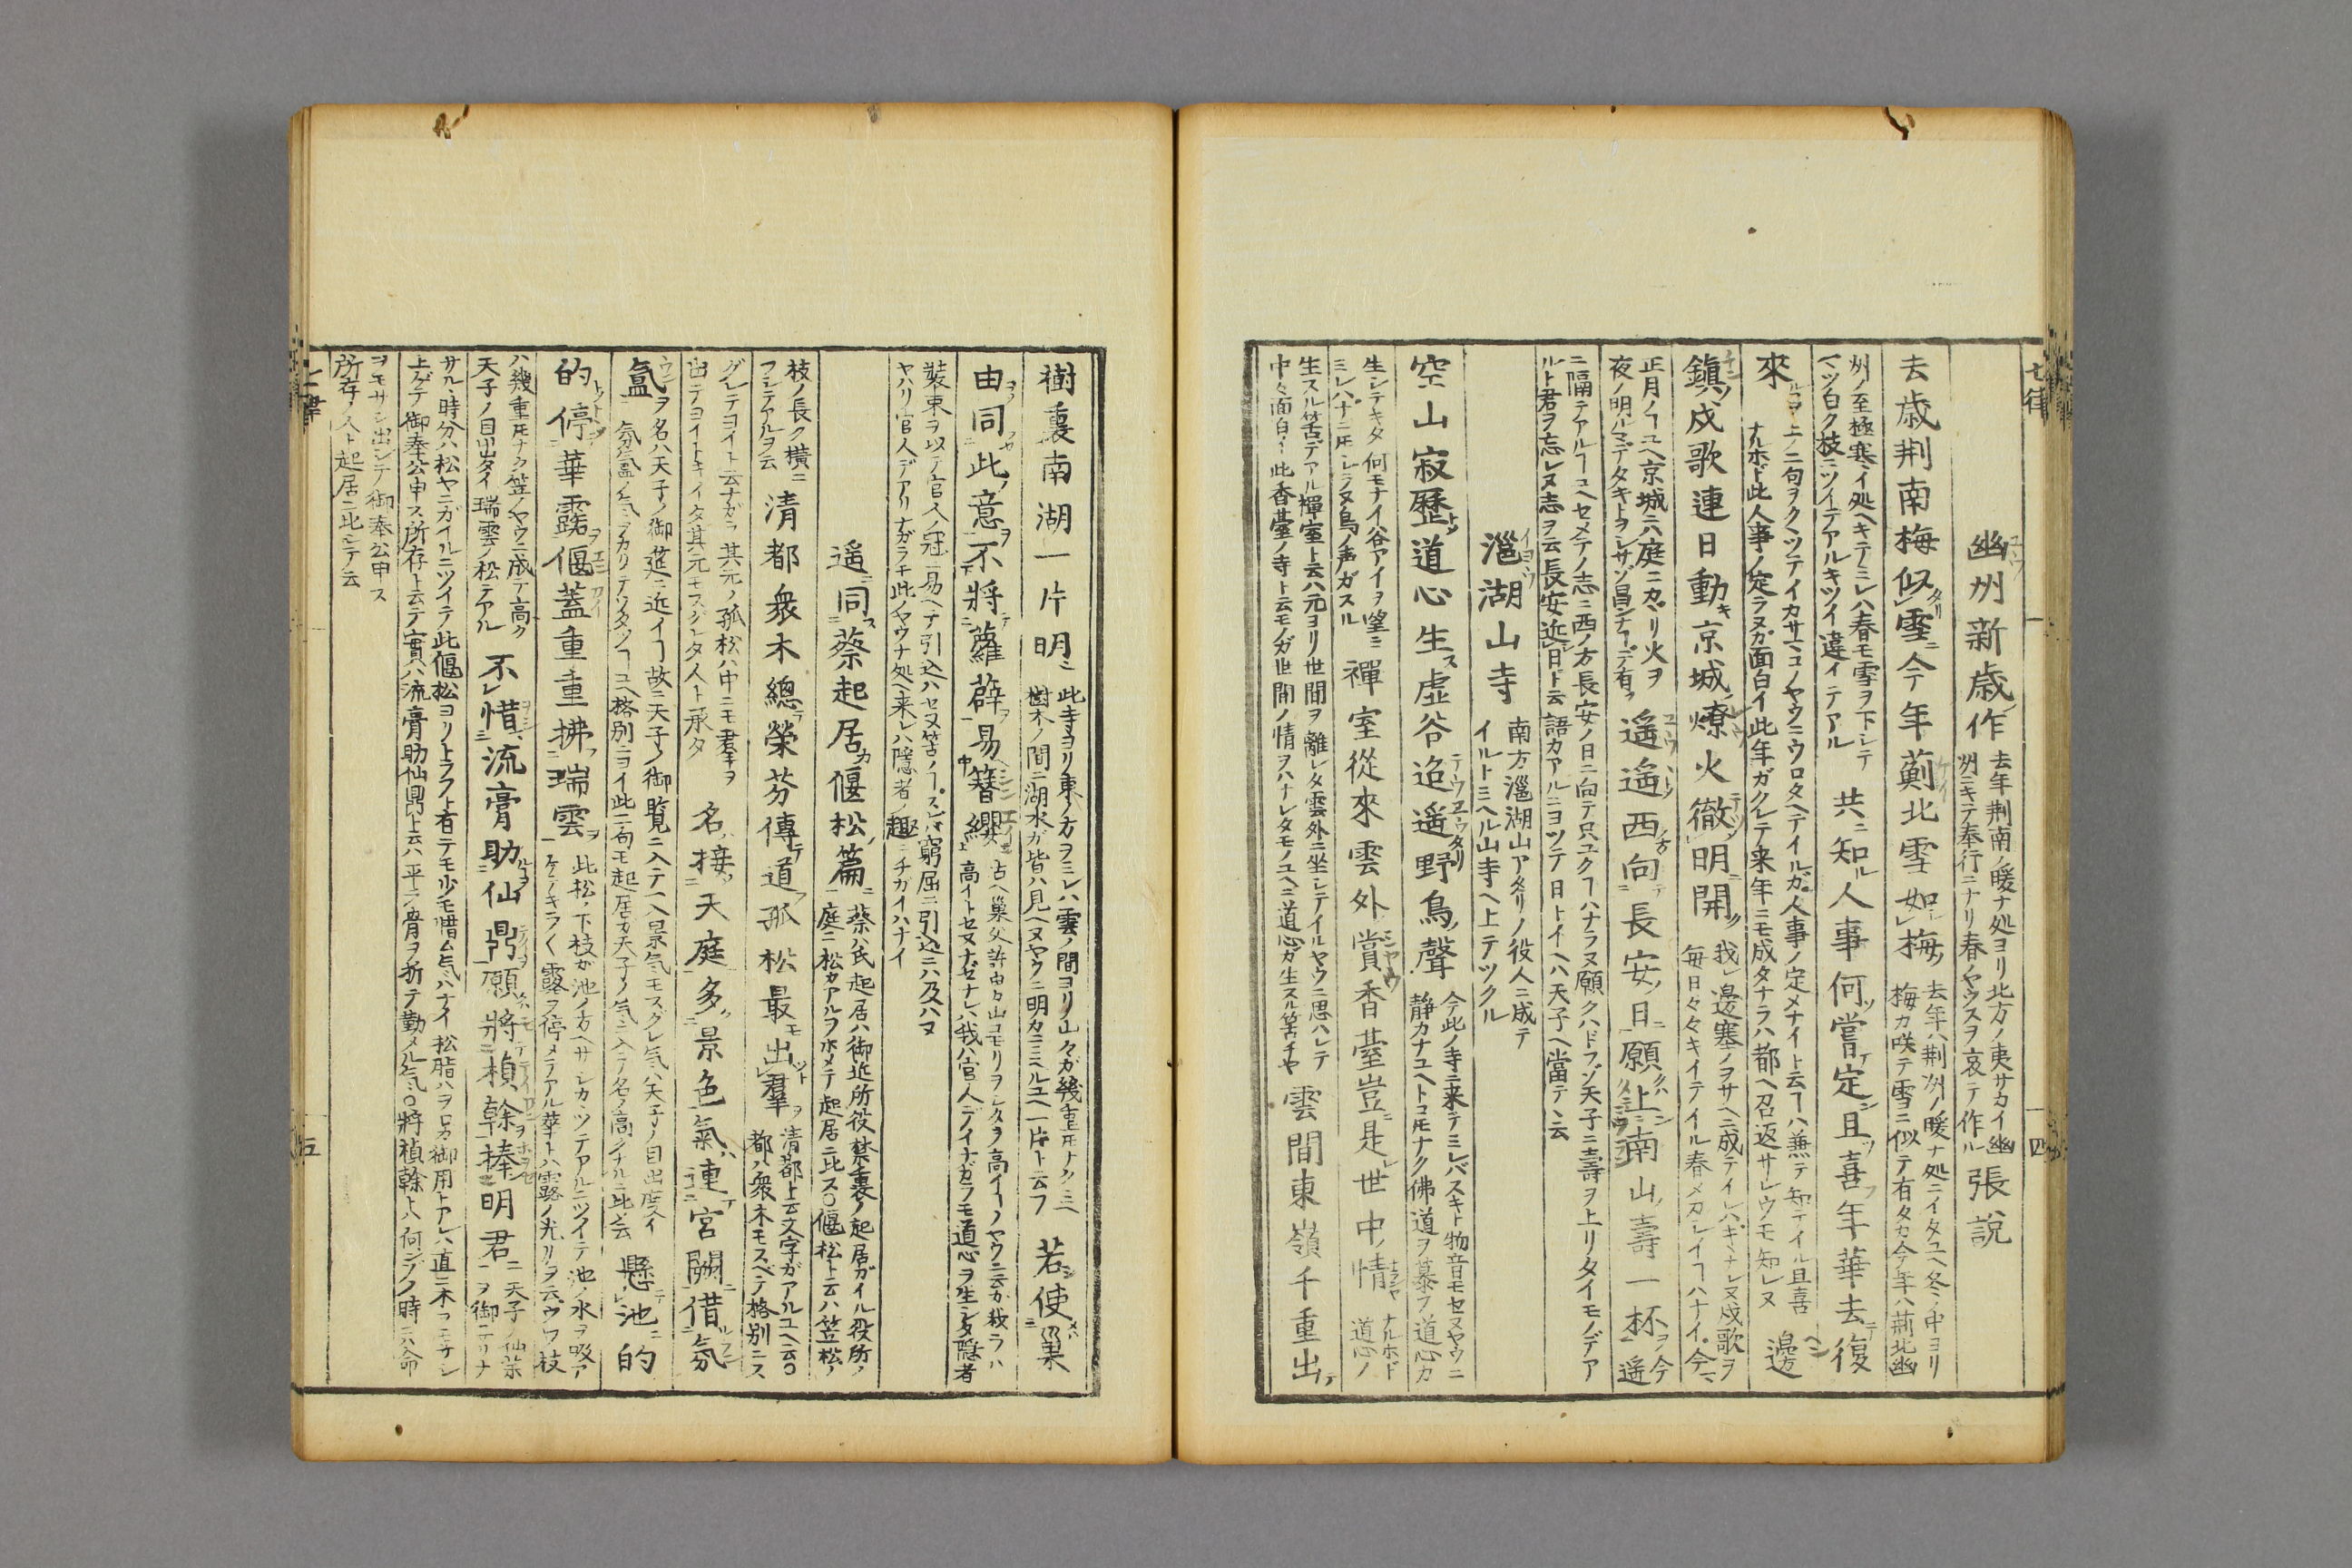 七律
四
幽州新歳作
去年荆南ノ暖ナ処ヨリ北方ノ夷サカイ幽
州ニキテ奉行ニナリ春ノヤウスヲ哀テ作ル
張説
去歳荆南梅似雪今年薊北雪如梅
去年ハ荆州ノ暖ナ処ニイタユヘ冬ノ中ヨリ
梅カ咲テ雪ニ似テ有タカ今年ハ薊北幽
州ノ至極寒イ処ヘキテミレハ春モ雪ヲ下シテ
マツ白ク枝ニツイテアルキツイ違イテアル
共知人事何嘗定且喜年華去復
來
上ノ二句ヲクヽツテイカサマコノヤウニウロタヘテイルガ人事ノ定メナイト云フハ兼テ知テイル且喜
ナルホド此人事ノ定ラヌガ面白イ此年ガクレテ来年ニモ成タナラハ都ヘ召返サレウモ知レヌ
邊
鎮戍歌連日動京城燎火徹明開
我レ邊塞ノヲサヘニ成テイレバキヽナレヌ戍歌ヲ
毎日々々キイテイル春メカレイフハナイ今
正月ノフユヘ京城ニハ庭ニカヽリ火ヲ
夜ノ明ルマデタキトヲシサゾ昌ンナフデ有ヲ
遥遥西向長安日願上南山壽一杯
今遥
ニ隔テアルフユヘセメテノ志ニ西ノ方長安ノ日ニ向テ只ユクフハナラヌ願クハドフソ天子ニ壽ヲ上リタイモノデア
ルト君ヲ忘レヌ志ヲ云長安近日ト云語カアルニヨツテ日トイヘハ天子ヘ當テヽ云
㴩湖山寺
南方㴩湖山アタリノ役人ニ成テ
イルトミヘル山寺ヘ上テツクル
空山寂歴道心生虚谷迢遥野鳥聲
今此ノ寺ニ来テミレバスキト物音モセヌヤウニ
静カナユヘトコモナク佛道ヲ慕フ道心カ
生シテキタ何モナイ谷アイヲ望ミ
ミレバナニモシラヌ鳥ノ声ガスル
禪室從來雲外賞香臺豈是世中情
ナルホド
道心ノ
生スル筈デアル禪室ト云ハ元ヨリ世間ヲ離レタ雲外ニ坐シテイルヤウニ思ハレテ
中々面白イ此香臺ノ寺ト云モノガ世間ノ情ヲハナレタモノユヘニ道心ガ生スル筈チヤ
雲間東嶺千重出
樹裏南湖一片明
此寺ヨリ東ノ方ヲミレハ雲ノ間ヨリ山々ガ幾重モナクミヘ
樹木ノ間ニ湖水ガ皆ハ見ヘヌヤウニ明カニミヘルユヘ一片ト云フ
若使巢
由同此意不將蘿薜易簪纓
古ヘ巣父許由カ山コモリヲシタヲ高イフノヤウニ云カ我ラハ
高イトセヌナゼナレハ我ハ官人デイナガラモ道心ヲ生シタ隠者
装束ヲ以テ官人ノ冠ニ易ヘテ引込ハセヌ筈ノフスレハ窮屈ニ引込ニハ及ハヌ
ヤハリ官人デアリナガラチ此ノヤウナ処ヘ来レハ隠者ノ趣ニチガイハナイ
遥同蔡起居偃松篇
蔡ハ氏起居ハ御近所役禁裏ノ起居ガイル役所ノ
庭ニ松カアルヲホメテ起居ニ比ス〇偃松ト云ハ笠松ノ
枝ノ長ク横ニ
フシテアルヲ云
清都衆木總榮芬傳道孤松最出羣
清都ト云文字ガアルユヘ云〇
都ハ衆木モスベテ格別ニス
グレテヨイト云ナガラ其元ノ孤松ハ中ニモ羣ヲ
出テヨイトキイタ其元モスグレタ人ト承タ
名接天庭多景色氣連宮闕借氛
氳
名ハ天子ノ御庭ニ近イフ故ニ天子ノ御覧ニ入テ一入景気モスグレ気ハ天子ノ目出度イ
氛氳ノ気ヲカリテソタツフユヘ格別ニヨイ此二句モ起居カ天子ノ気ニ入テ名ノ高クナルニ比云
懸池的
的停華露偃蓋重重拂瑞雲
此松ノ下枝ガ池ノ方ヘサシカヽツテアルニツイテ池ノ水ヲ吸ア
ケテキラ〱露ヲ停メテアル華トハ露ノ光リヲ云ヴワ枝
ハ幾重モナク笠ノヤウニ成テ高ク
天子ノ目出タイ瑞雲ノ松テアル
不惜流膏助仙鼎願將楨榦捧明君
天子ノ仙薬
ヲ御ニリナ
サル時分ハ松ヤニガイルニツイテ此偃松ヨリトラフト有テモ少モ惜ム気ハナイ松脂ハヲロカ御用トアレハ直ニ木フモサシ
上ゲテ御奉公申ス所存ト云テ實ハ流膏助仙鼎ト云ハ平テ骨ヲ折テ勤メル気〇將楨榦トハ何ンゾノ時ニハ命
ヲモサシ出シテ御奉公申ス
所存ノ人ト起居ニ比シテ云
五